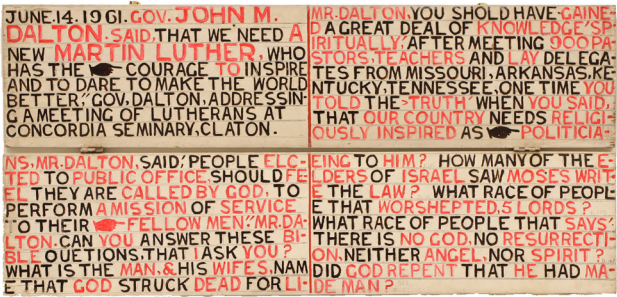 JUNE.14.1961. GOV. JOHN M.
DALTON. SAID, THAT WE NEED A
NEW MARTIN LUTHER, WHO
HAS THE COURAGE TO INSPIRE
AND TO DARE TO MAKE THE WORLD
BETTER," GOV, DALTON, ADDRESSIN-
G A MEETING OF LUTHERANS AT
CONCORDIA SEMINARY, CLATON.
MR. DALTON, YOU SHOLD HAVE-GAINE-
D A GREAT DEAL OF KNOWLEDGE' SP-
IRITUALLY,' AFTER MEETING 900 PA-
STORS, TEACHERS AND LAY DELEGA-
TES FROM MISSOURI, ARKANSAS, KE-
NTUCKY, TENNESSEE, ONE TIME YOU
TOLD THE 'TRUTH' WHEN YOU SAID,
THAT OUR COUNTRY NEEDS RELIGI-
OUSLY INSPIRED AS POLITICIA-
NS, MR. DALTON, SAID,' PEOPLE ELC-
TED TO PUBLIC OFFICE SHOULD FE-
EL THEY ARE CALLED BY GOD, TO
PERFORM A MISSION OF SERVICE
TO THEIR FELLOW MEN." MR. DA-
LTON. CAN YOU ANSWER THESE BI-
BLE OUETIONS, THAT I ASK YOU?
WHAT IS THE MAN, & HIS WIFES, NAM
E THAT GOD STRUCK DEAD FOR LI-
EING TO HIM? HOW MANY OF THE E-
LDERS OF ISRAEL SAW MOSES WRIT-
E THE LAW? WHAT RACE OF PEOPL-
E THAT WORSHEPTED, 5 LORDS?
WHAT RACE OF PEOPLE THAT SAYS'
THERE IS NO GOD, NO RESURRECTI-
ON, NEITHER ANGEL, NOR SPIRIT?
DID GOD REPENT THAT HE HAD MA-
DE MAN?